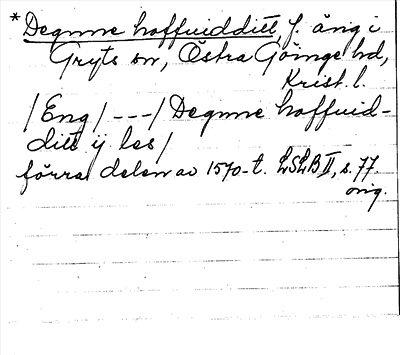 * Degnne hoffuidditt f. äng i
Gryts sn, Östra Göinge hd,
Krist. l.
/Eng/ --- / Degnne hoffuid-
ditt ij les/
förra delen av 1570-t. LSLB II, s. 77.
orig.